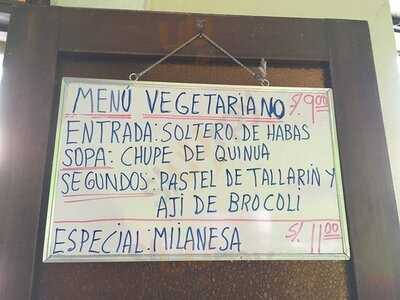 MENÚ VEGETARIANO S/.9.00
ENTRADA: SOLTERO DE HABAS
SOPA: CHUPE DE QUINUA
SEGUNDOS: PASTEL DE TALLARIN Y
AJI DE BROCOLI
ESPECIAL: MILANESA S/. 11.00